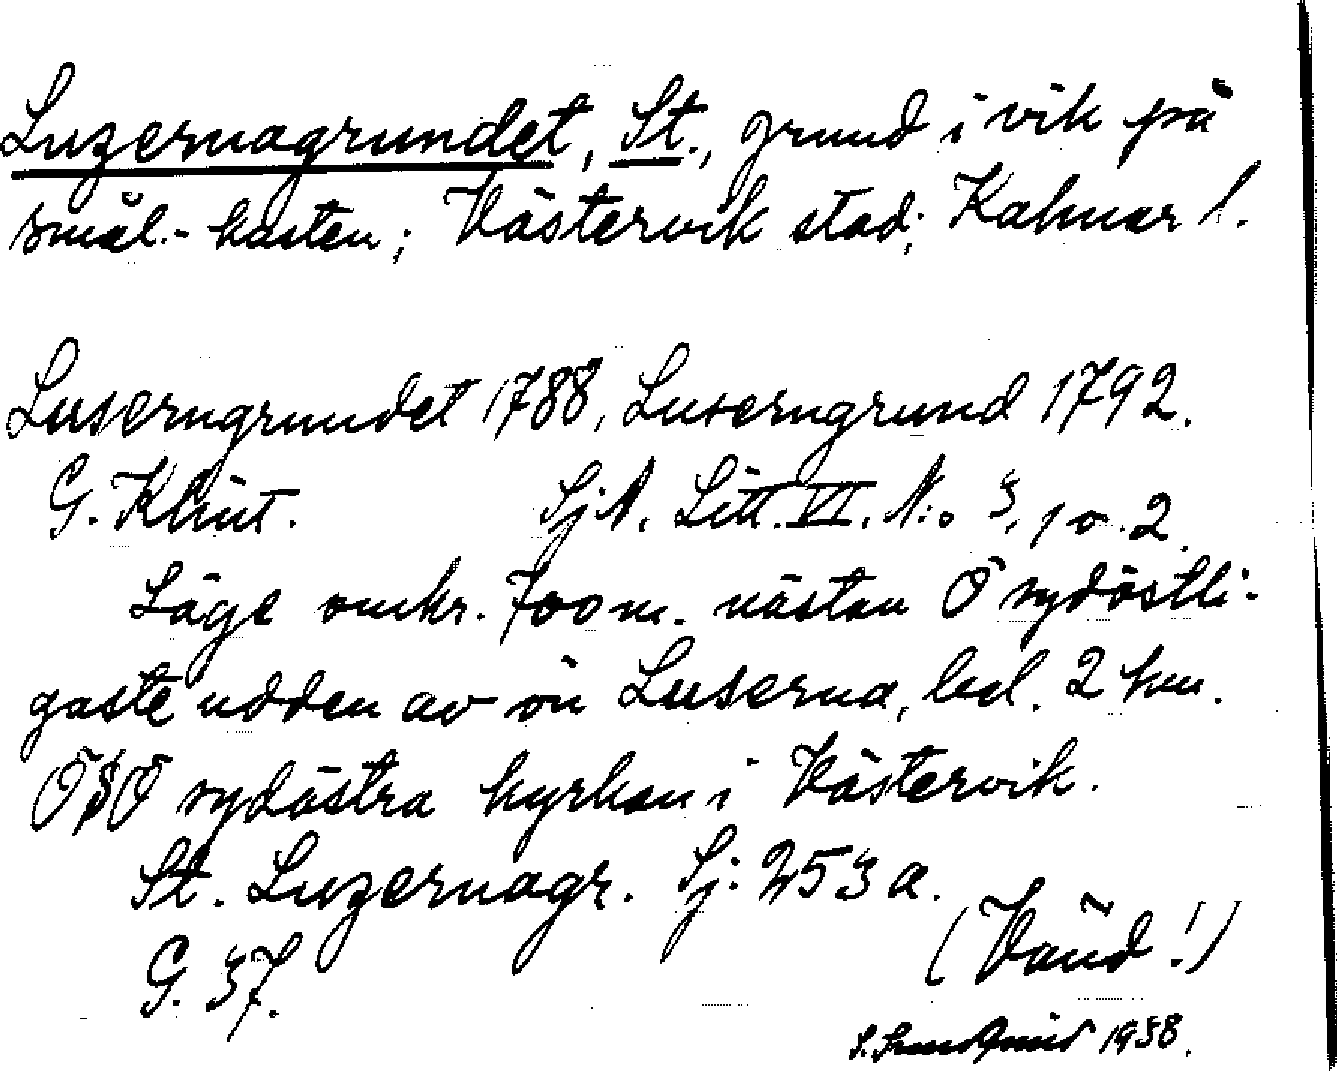 Luzernagrundet, St., grund i vik på
smål.-kusten; Västervik stad; Kalmar l.
Luserngrundet 1788, Luserngrund 1792.
G. Klint. SjA. Litt. VI. N:o 3, 1 o. 2.
Läge omkr. 700 m. nästan Ö sydöstli-
gaste udden av ön Luserna, bel. 2 km.
ÖSÖ sydöstra kyrkan i Västervik.
St. Luzernagr. Sj: 253 a.
G. 37.
(Vänd!)
S. Sundqvist 1938.